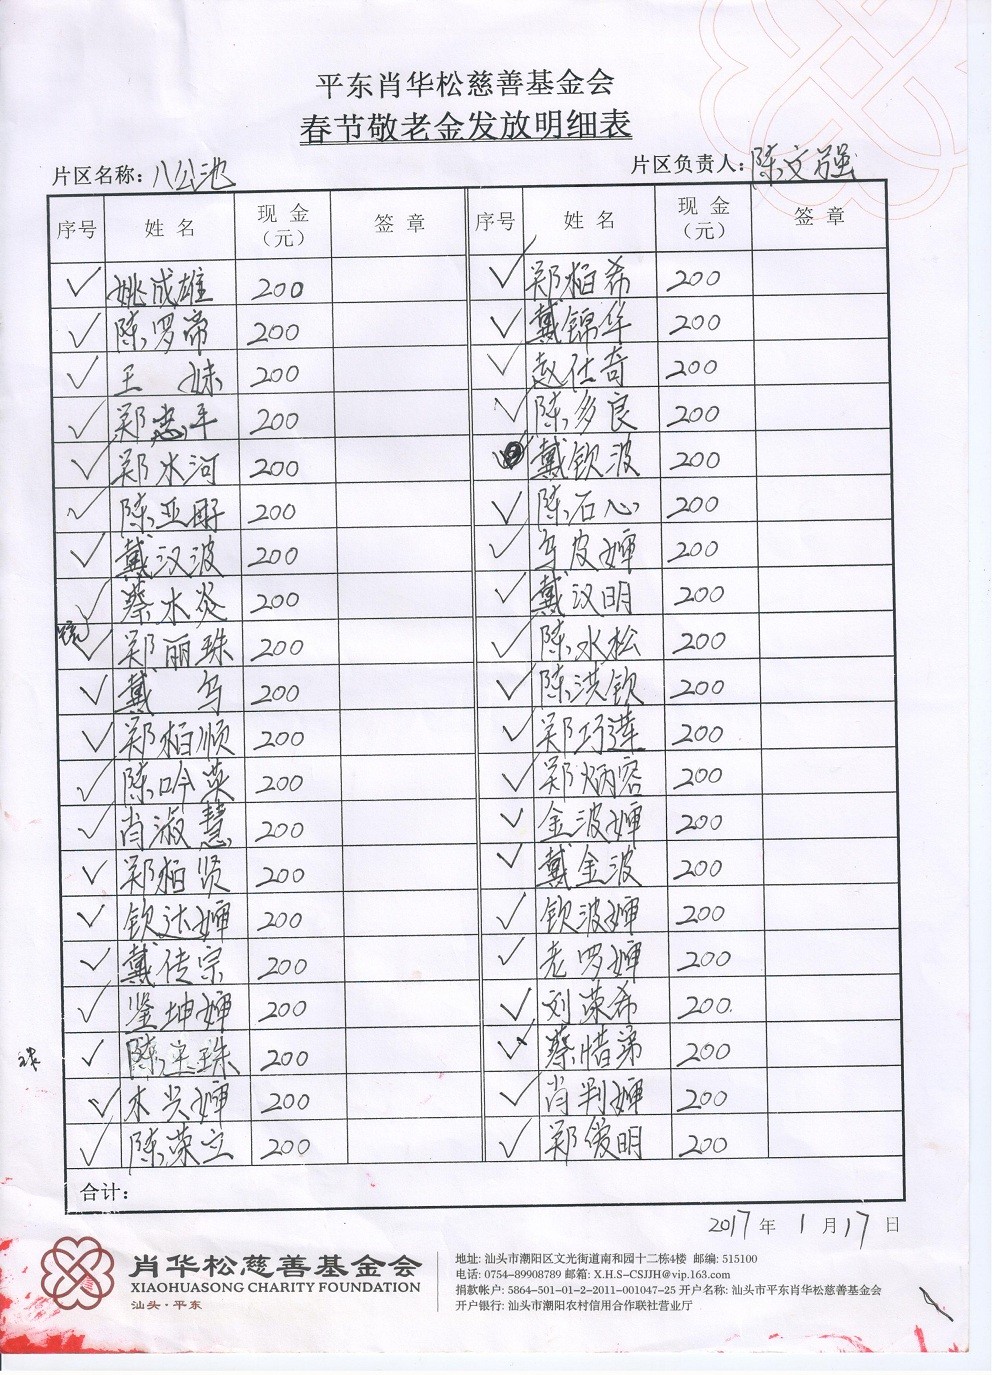 平东肖华松慈善基金会
春节敬老金发放明细表
片区名称：八公池 片区负责人：陈文强
序号 姓名 现金（元） 签章 序号 姓名 现金（元） 签章
✓ 姚成雄 200 ✓ 郑柏希 200
✓ 陈罗帝 200 ✓ 戴锦华 200
✓ 王妹 200 ✓ 赵仕奇 200
✓ 郑忠平 200 ✓ 陈多良 200
✓ 郑水河 200 戴钦波 200
✓ 陈亚 200 ✓ 陈石心 200
✓ 戴汉波 200 ✓ 乌皮婶 200
✓ 蔡木炎 200 ✓ 戴汉明 200
✓ 郑丽珠 200 ✓ 陈水松 200
✓ 戴乌 200 ✓ 陈洪钦 200
✓ 郑柏顺 200 ✓ 郑巧莲 200
✓ 陈吟英 200 ✓ 郑炳容 200
✓ 肖淑慧 200 ✓ 金波婶 200
✓ 郑柏贤 200 ✓ 戴金波 200
✓ 钦达婶 200 ✓ 钦波婶 200
✓ 戴传宗 200 ✓ 老罗婶 200
✓ 鉴坤婶 200 ✓ 刘荣希 200
✓ 陈宝珠 200 ✓ 蔡惜弟 200
✓ 木兴婶 200 ✓ 肖判婶 200
✓ 陈荣立 200 ✓ 郑俊明 200
合计：
2017年1月17日
肖华松慈善基金会
XIAOHUASONG CHARITY FOUNDATION
汕头·平东
地址: 汕头市潮阳区文光街道南和园十二栋4楼 邮编: 515100
电话: 0754-89908789 邮箱: X.H.S-CSJJH@vip.163.com
捐款帐户: 5864-501-01-2-2011-001047-25 开户名称: 汕头市平东肖华松慈善基金会
开户银行: 汕头市潮阳农村信用合作联社营业厅